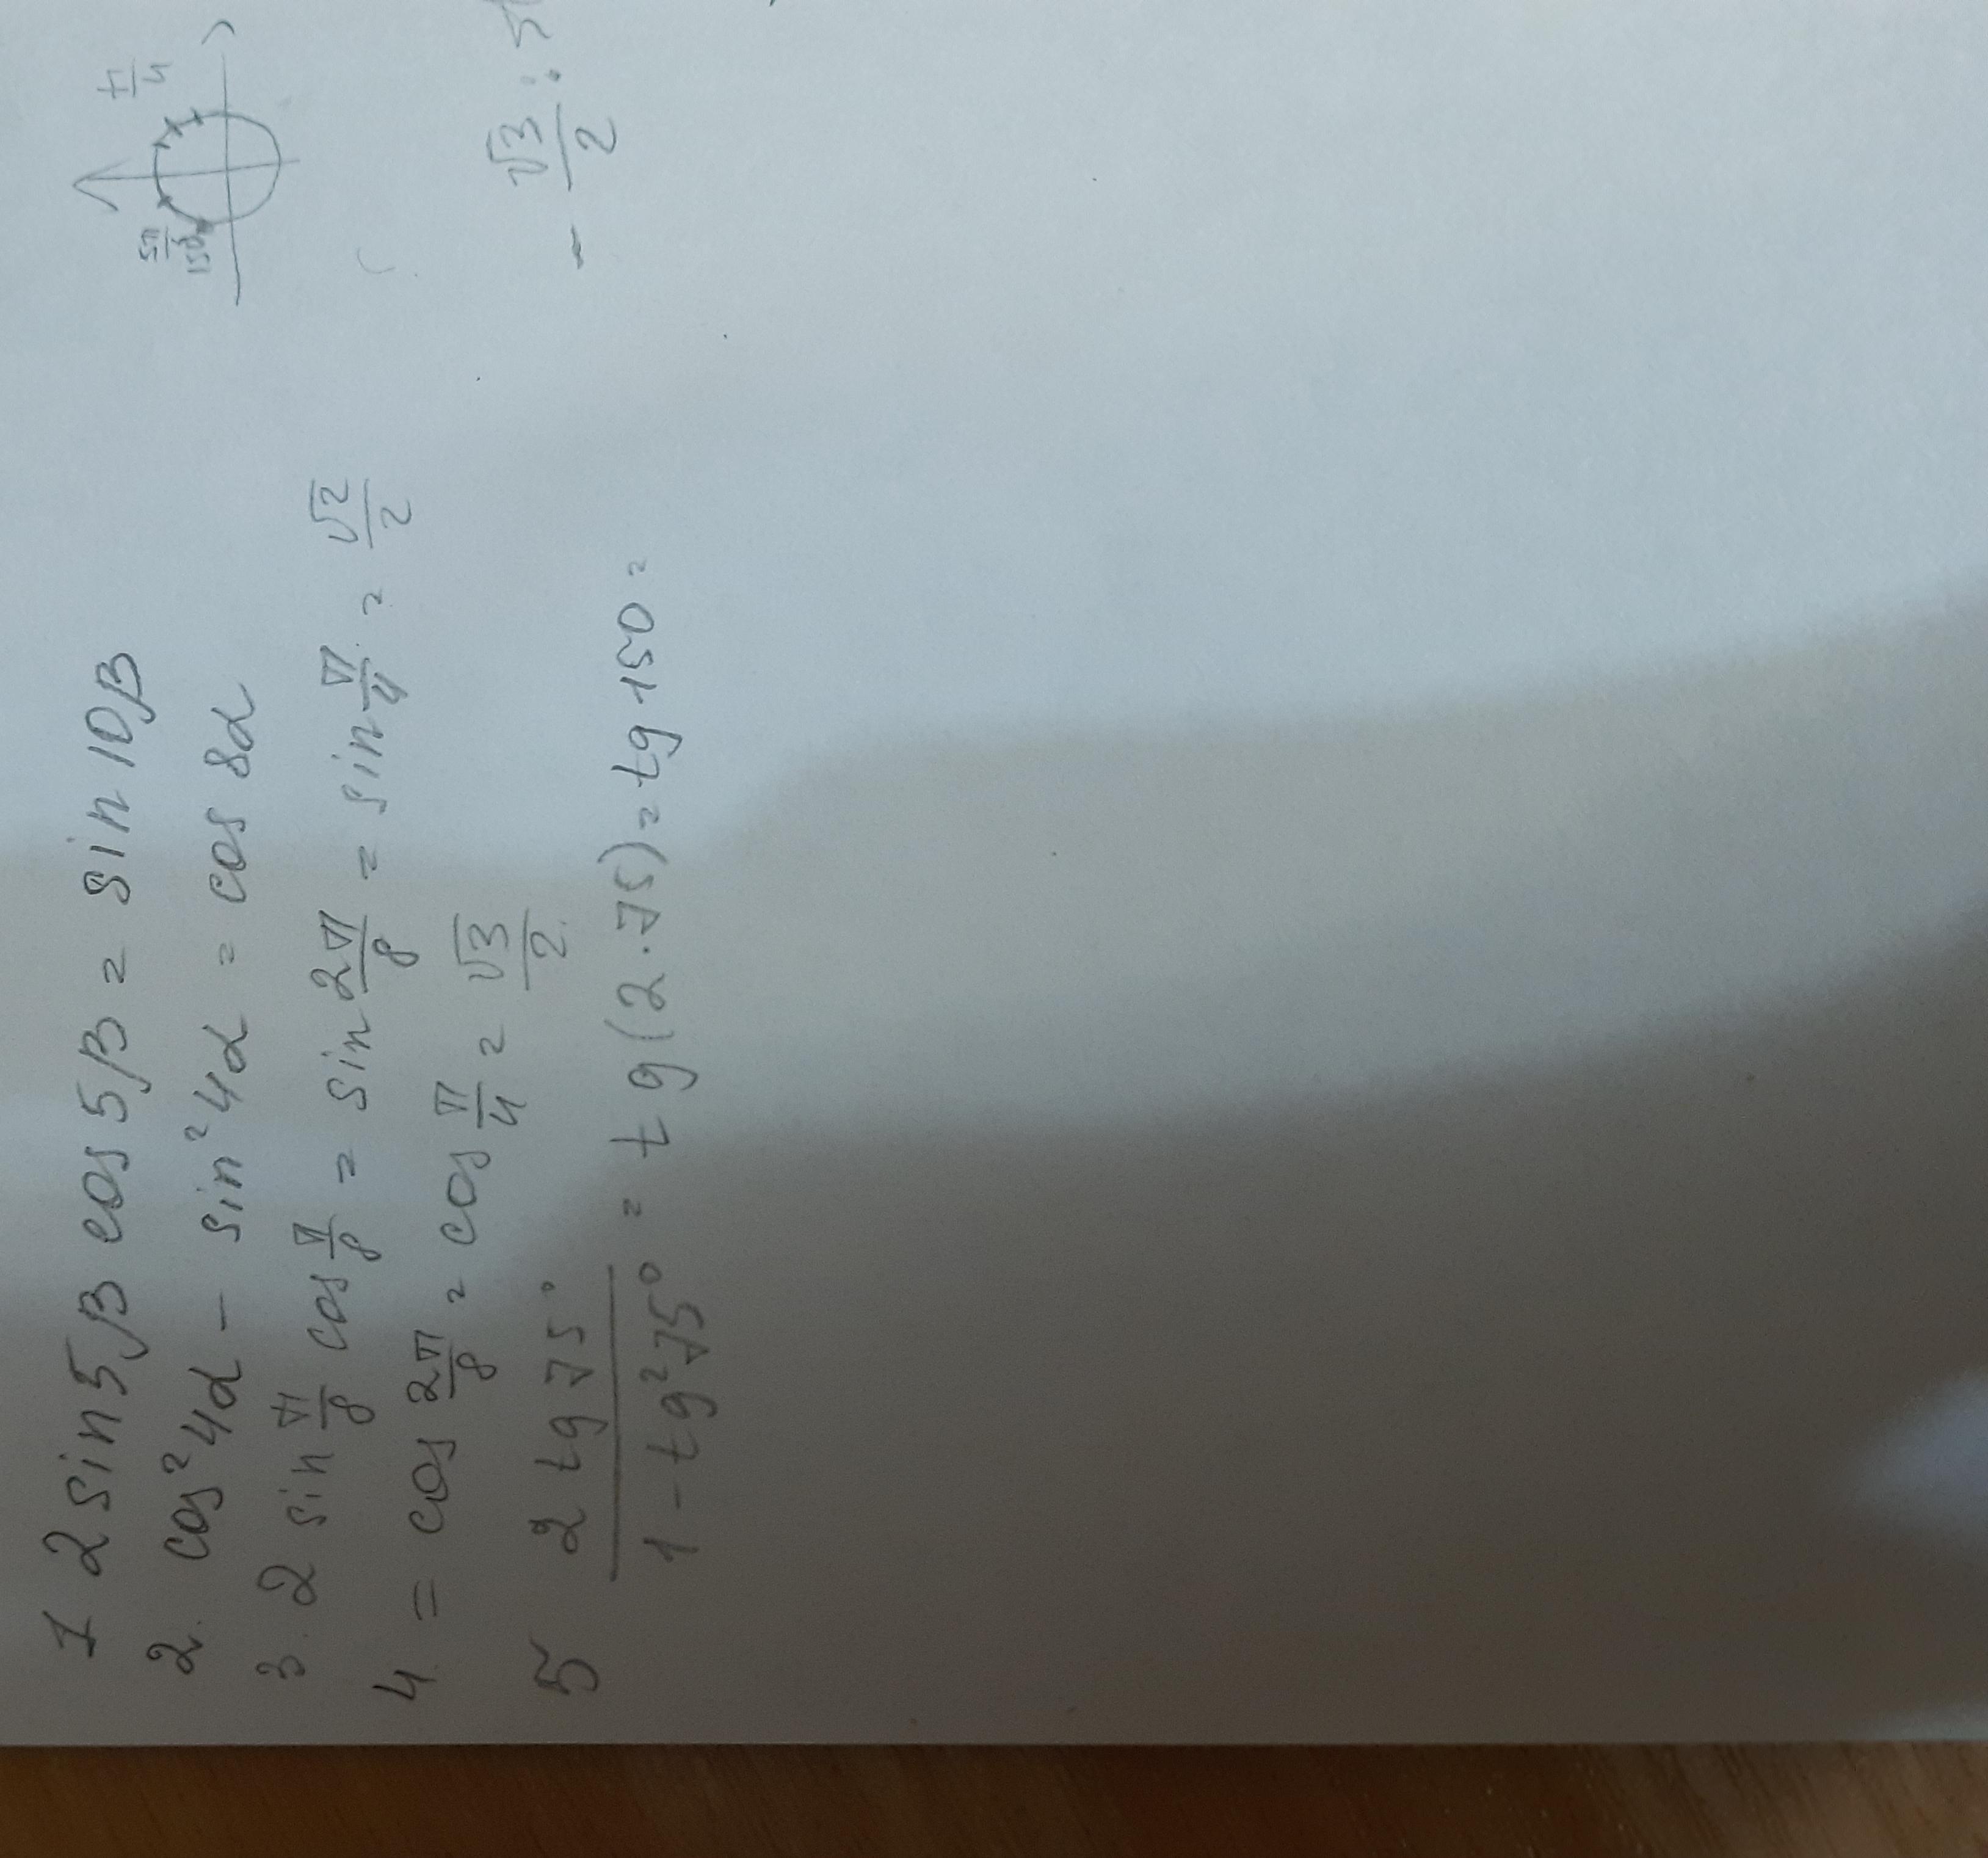 1 2 sin 5β cos 5β = sin 10β
2. cos²4α - sin²4α = cos 8α
3. 2 sin π/8 cos π/8 = sin 2π/8 = sin π/4 = √2/2
4 = cos 2π/8 = cos π/4 = √3/2
5 2 tg 75° / 1 - tg²75° = tg(2·75) = tg 150 =
5π
150
π/4
- √3/2 :